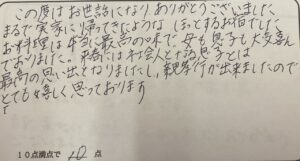 この度はお世話になり、ありがとうございました、
まるで実家に帰ってきたような ほっとするお宿でした
お料理は本当に最高の味で、母も息子も大変喜ん
でおりました。来春には社会人となる息子とは
最高の思い出となりましたし、親孝行が出来ましたので
とても嬉しく思っております
10点満点で 10 点